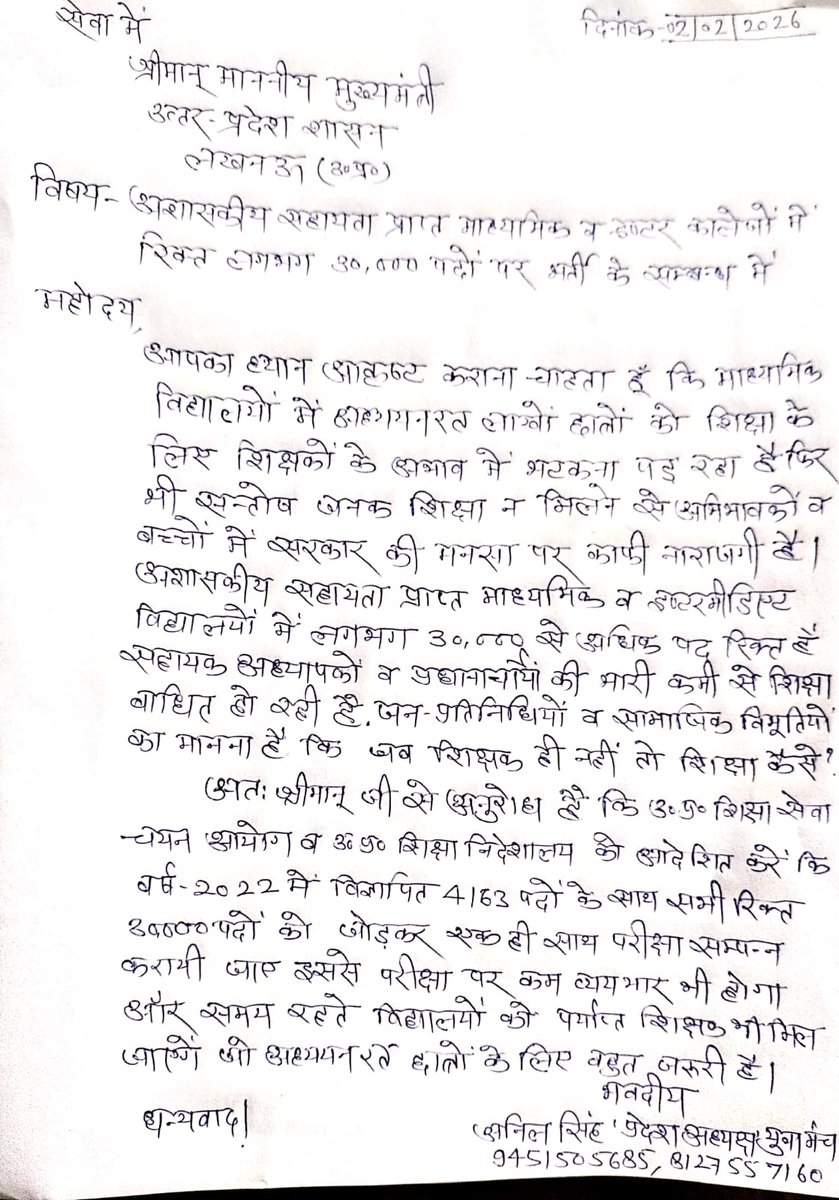 सेवा में
दिनांक-02/02/2026
श्रीमान् माननीय मुख्यमंत्री
उत्तर-प्रदेश शासन
लखनऊ (उ०प्र०)
विषय- अशासकीय सहायता प्राप्त माध्यमिक व इण्टर कालेजों में
रिक्त लगभग 30,000 पदों पर भर्ती के सम्बन्ध में
महोदय,
आपका ध्यान आकृष्ट कराना चाहता हूँ कि माध्यमिक
विद्यालयों में अध्ययनरत लाखों छात्रों को शिक्षा के
लिए शिक्षकों के अभाव में भटकना पड़ रहा है फिर
भी सन्तोष जनक शिक्षा न मिलने से अभिभावकों व
बच्चों में सरकार की मनसा पर काफी नाराजगी है।
अशासकीय सहायता प्राप्त माध्यमिक व इण्टरमीडिएट
विद्यालयों में लगभग 30,000 से अधिक पद रिक्त हैं
सहायक अध्यापकों व प्रधानाचार्यों की भारी कमी से शिक्षा
बाधित हो रही है, जन-प्रतिनिधियों व सामाजिक विभूतियों
का मानना है कि जब शिक्षक ही नहीं तो शिक्षा कैसे?
अतः श्रीमान् जी से अनुरोध है कि उ०प्र० शिक्षा सेवा
चयन आयोग व उ०प्र० शिक्षा निदेशालय को आदेशित करें कि
वर्ष-2022 में विज्ञापित 4163 पदों के साथ सभी रिक्त
30000 पदों को जोड़कर एक ही साथ परीक्षा सम्पन्न
करायी जाए इससे परीक्षा पर कम व्ययभार भी होगा
और समय रहते विद्यालयों को पर्याप्त शिक्षक भी मिल
जाएगें जो अध्ययन रत छात्रों के लिए बहुत जरूरी है।
भवदीय
धन्यवाद!
अनिल सिंह 'प्रदेश अध्यक्ष' युवा मंच
9451505685, 8127557160